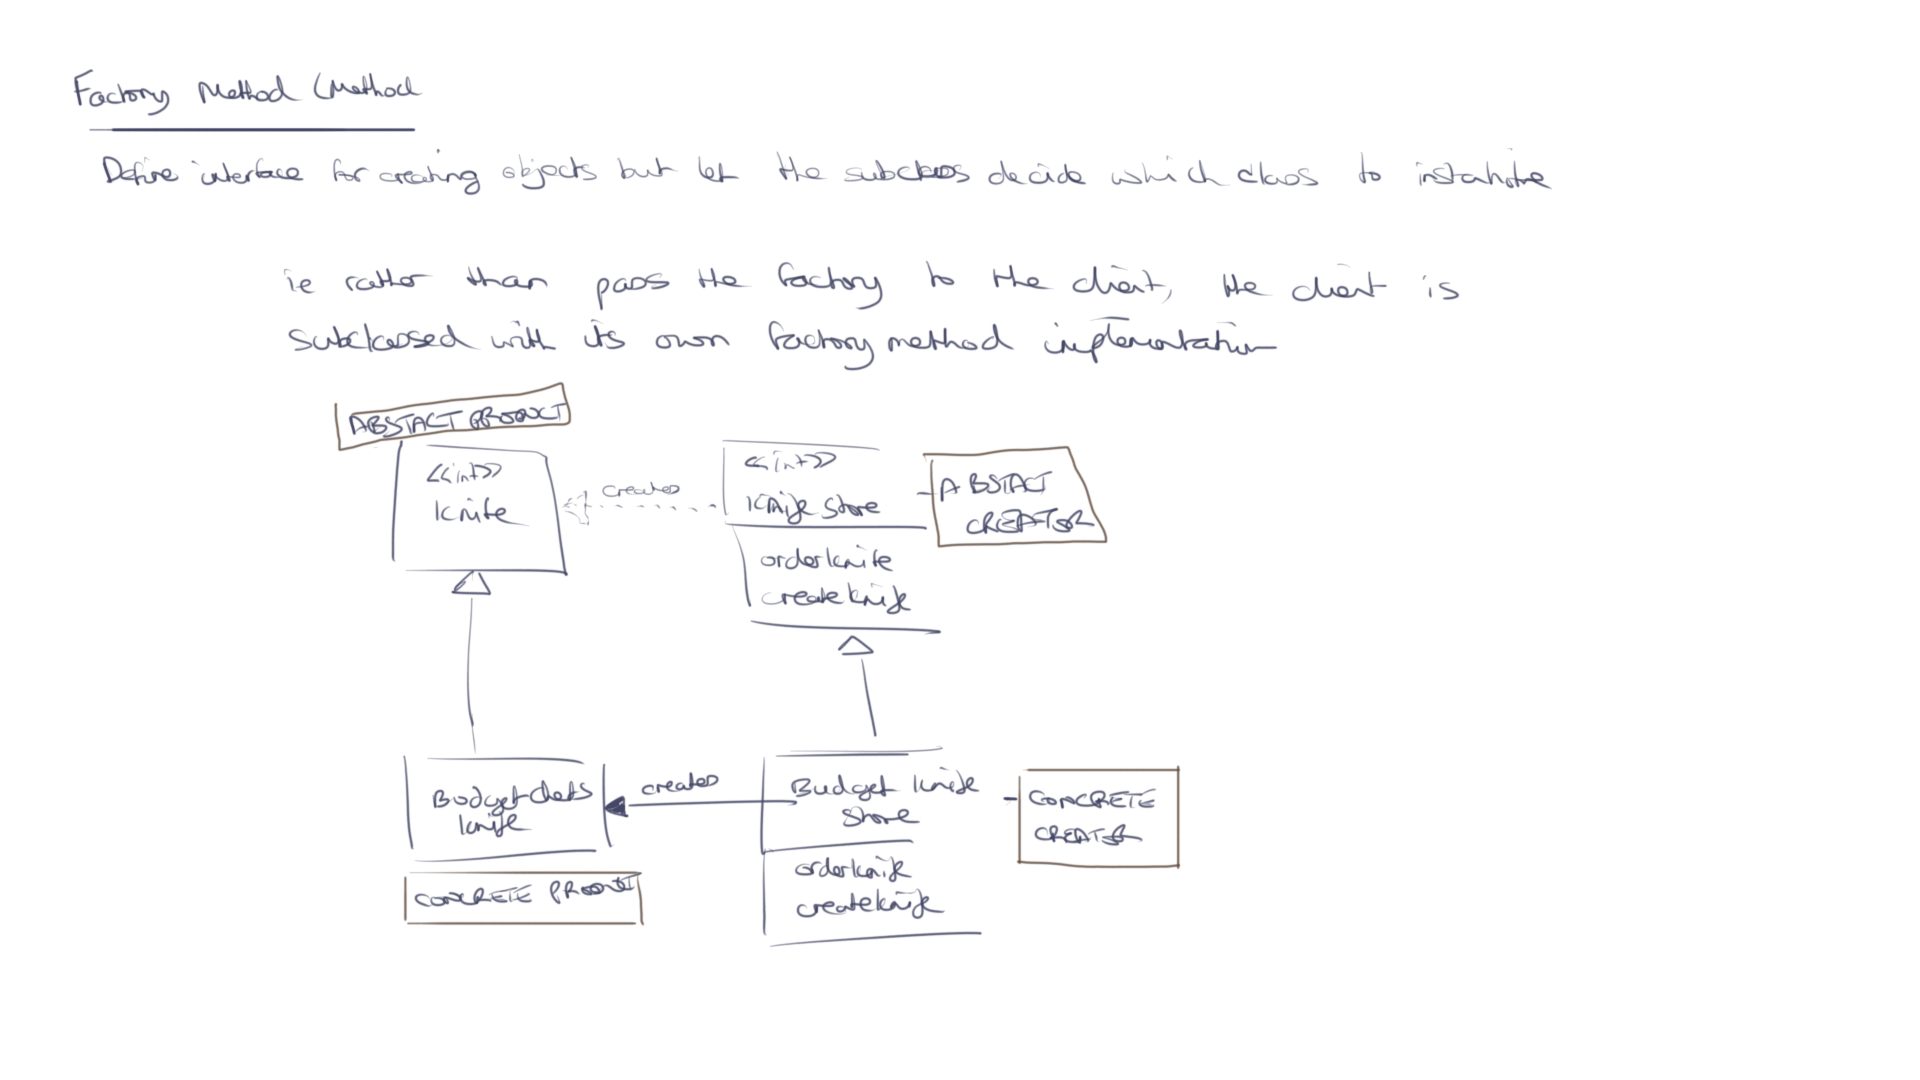 Factory Method (Method
Define interface for creating objects but let the subclass decide which class to instantiate
ie rather than pass the factory to the client, the client is
subclassed with its own factory method implementation
ABSTACT PRODUCT
<<int>>
Knife
creates
<<int>>
Knife Store
orderknife
createknife
ABSTACT
CREATOR
Budget chefs
knife
creates
Budget knife
store
orderknife
createknife
CONCRETE
CREATOR
CONCRETE PRODUCT